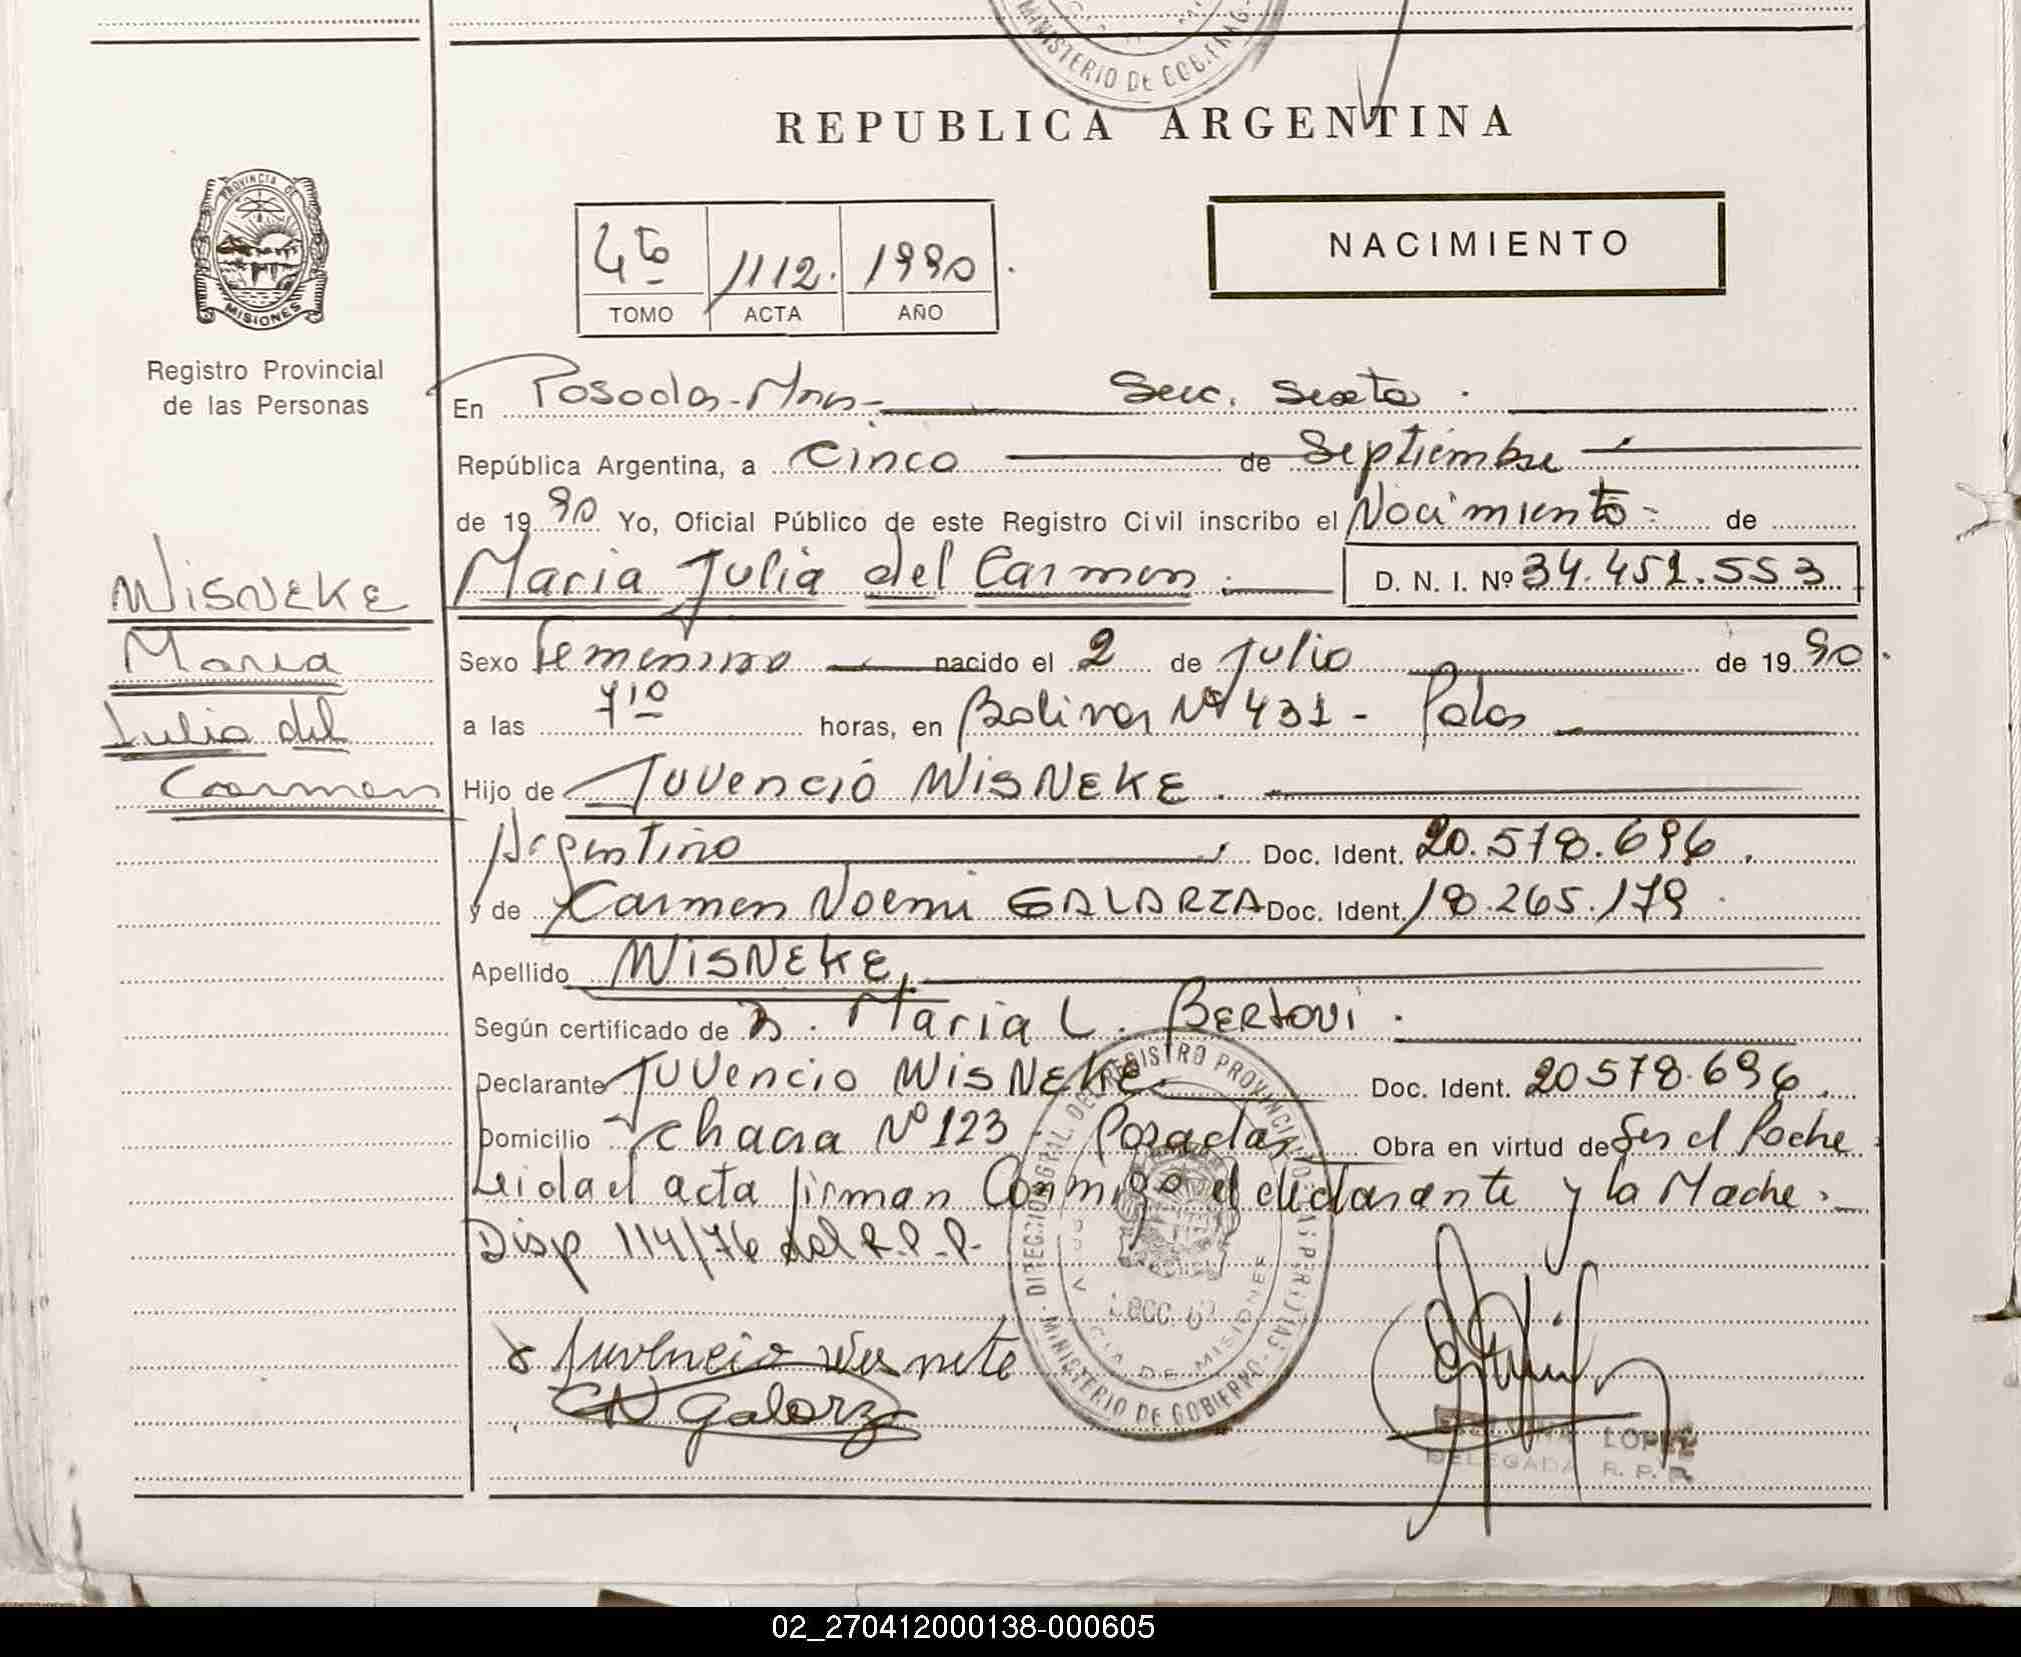 MINISTERIO DE GOB.
REPUBLICA ARGENTINA
PROVINCIA DE
MISIONES
Registro Provincial
de las Personas
4to 1112. 1990
TOMO ACTA AÑO
NACIMIENTO
En Posadas-Mnes- Secc. Sexta.
República Argentina, a Cinco de Septiembre
de 1990 Yo, Oficial Público de este Registro Civil inscribo el Nacimiento de
Maria Julia del Carmen D. N. I. Nº 34.451.553
WisNEKE
Maria
Julia del
Carmen
Sexo Femenino nacido el 2 de Julio de 1990.
a las 7 10 horas, en Bolivar Nº 431 - Pdas
Hijo de Juvencio WisNEKE.
Argentino Doc. Ident. 20.578.696.
y de Carmen Noemi GALARZA Doc. Ident. 18.265.179.
Apellido WisNEKE,
Según certificado de D. Maria L. Bertoui.
Declarante Juvencio WisNEKE. Doc. Ident. 20578.696.
Domicilio Chacra Nº 123 - Posadas Obra en virtud de Ser el Padre.
Leida el acta firman Conmigo el declarante y la Madre.
Disp 114/76 del R.P.P.
DIRECCION GRAL. DEL REGISTRO PROVINCIAL DE LAS PERSONAS
MINISTERIO DE GOBIERNO
DE MISIONES
Juvencio Wisneke
CN Galarza
LOPEZ
DELEGADA R. P. P.
02_270412000138-000605